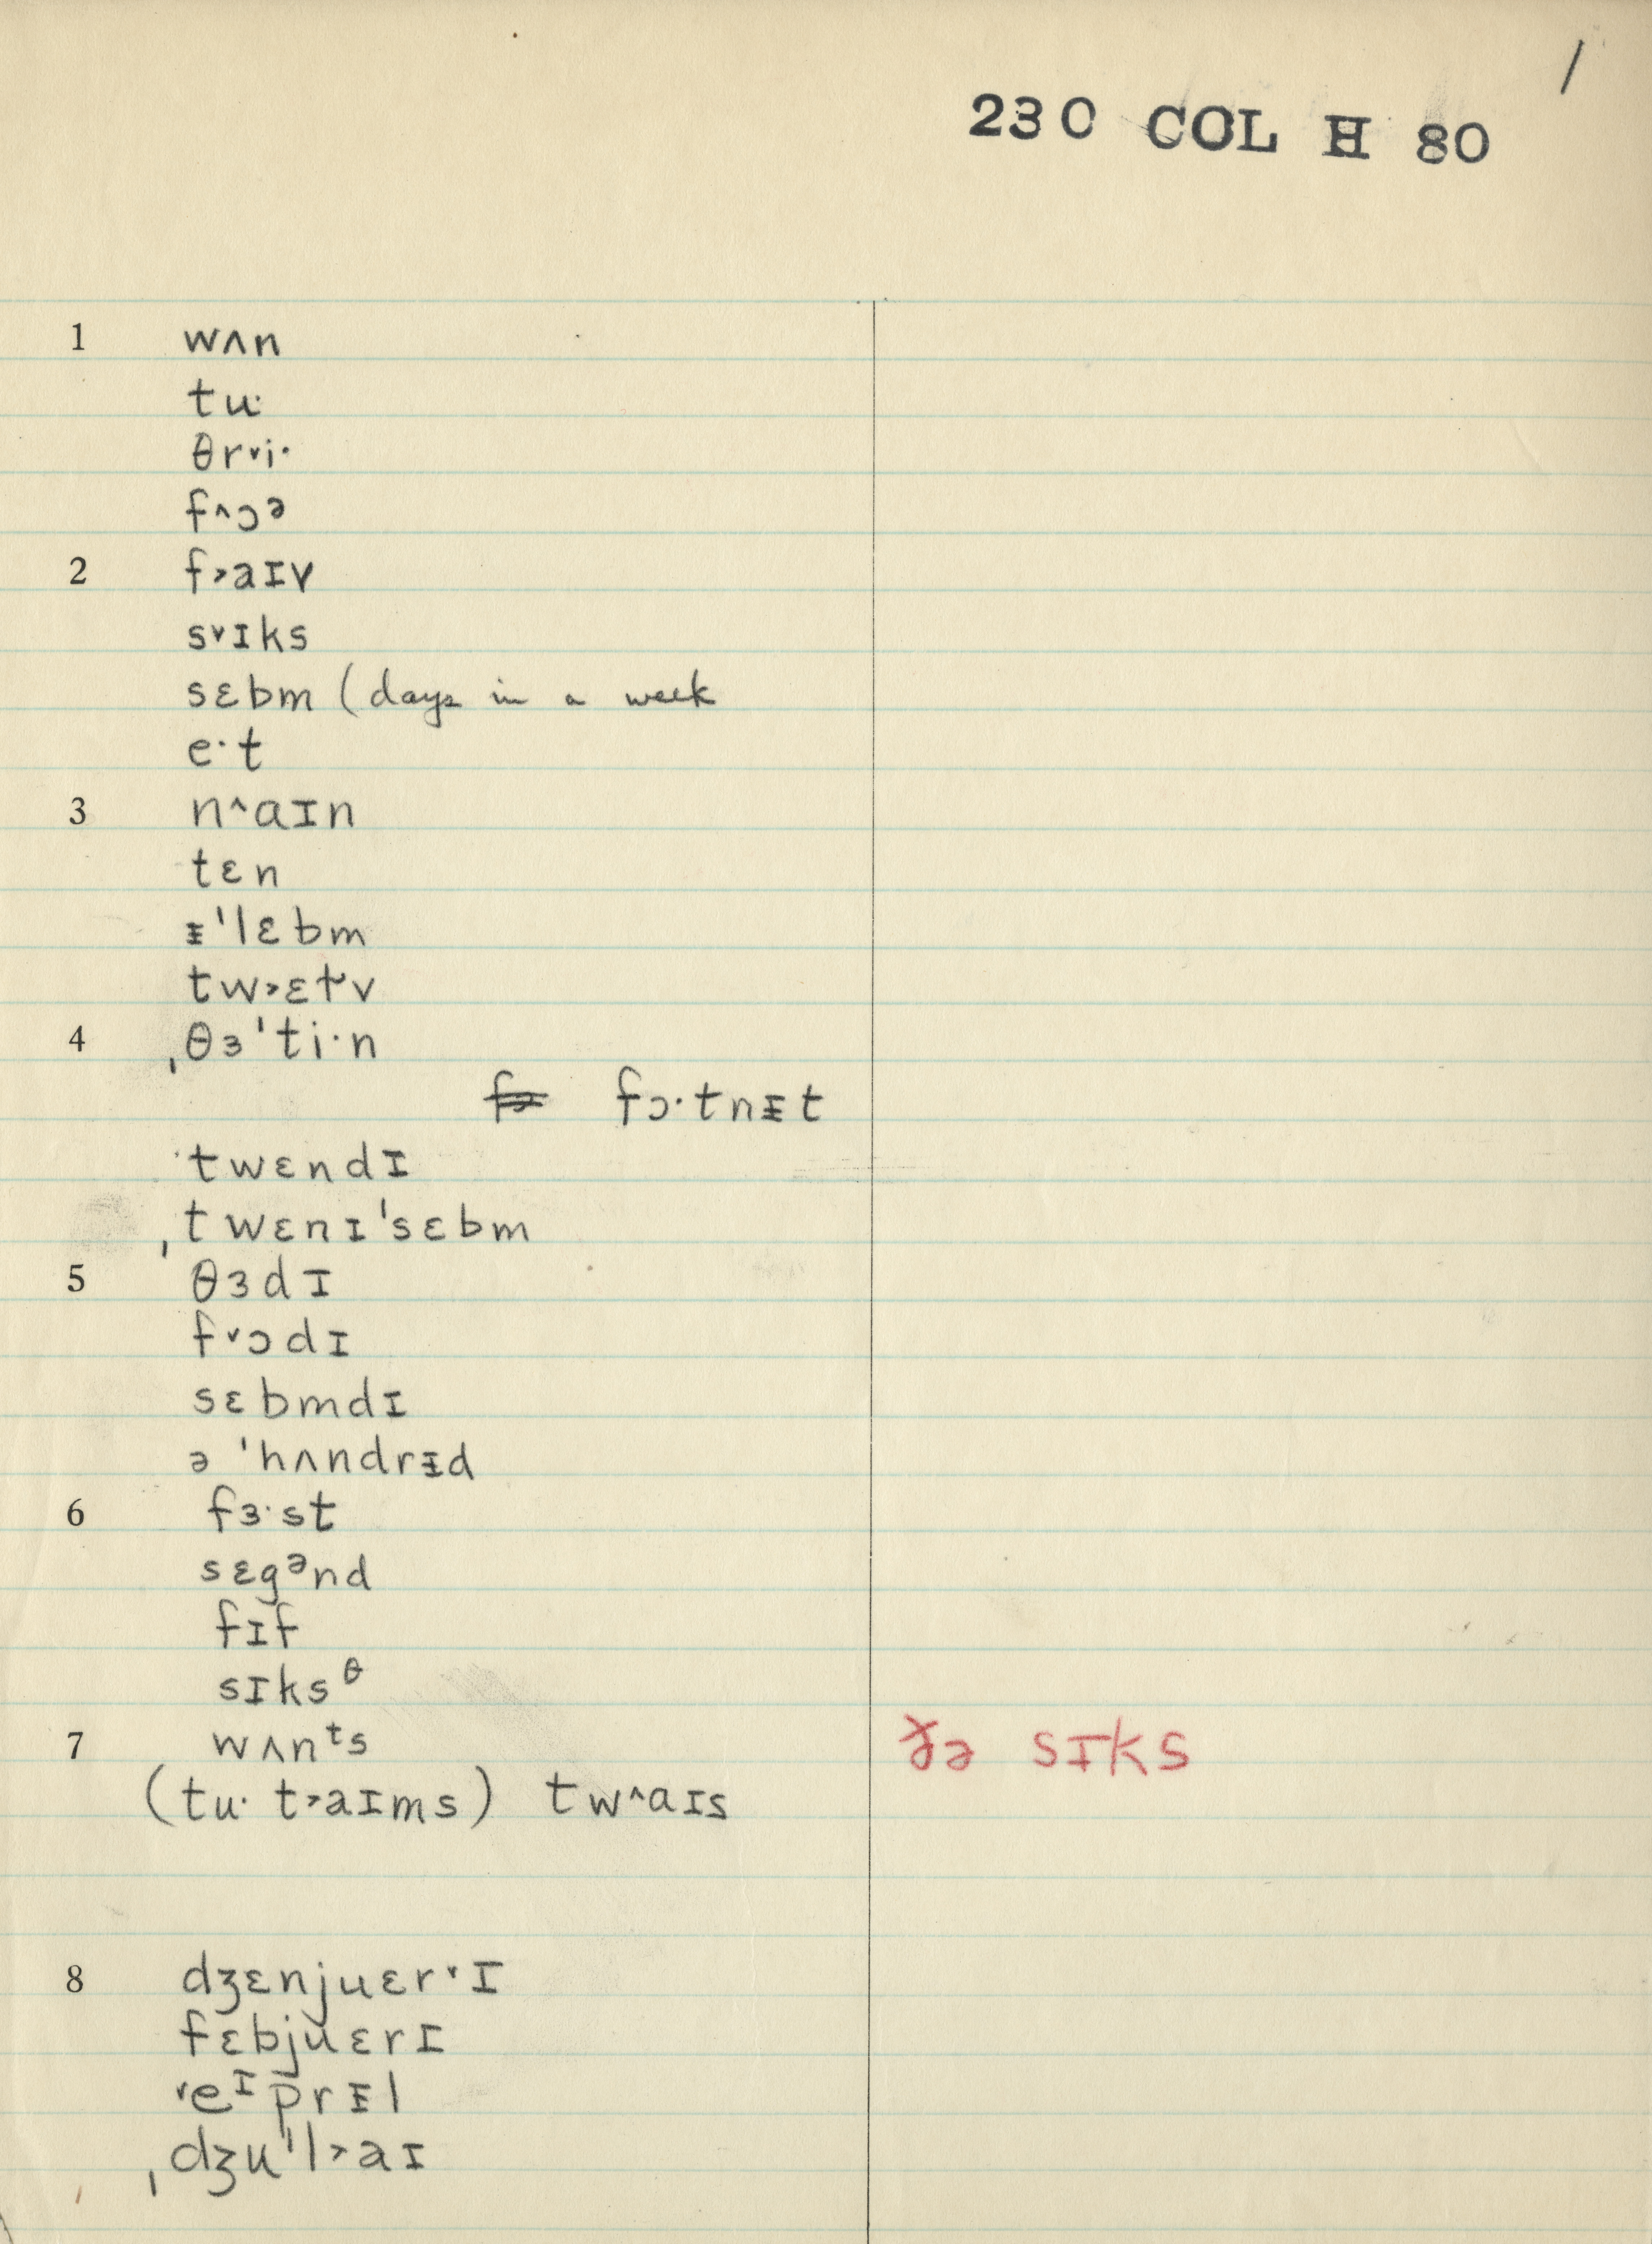 /
230 COL H 80
1 wʌn
tu·
θr˅i·
f˄ɔᵊ
2 f˃aɪv
s˅ɪks
sɛbm (days in a week
e·t
3 n˄aɪn
tɛn
ᵻ'lɛbm
4 ˌθɜ'ti·n
fɔ·tnᵻt
twɛndɪ
ˌtwɛnɪ'sɛbm
5 θɜdɪ
f˅ɔdɪ
sɛbmdɪ
ə 'hʌndrᵻd
6 fɜ·st
sɛgᵊnd
fɪf
sɪksᶿ
7 wʌnᵗs
sɪks
(tu· t˃aɪms) tw˄aɪs
8 dʒɛnjuɛr˅ɪ
fɛbjuɛrɪ
˅eᴵprᵻl
ˌdʒu'l˃aɪ